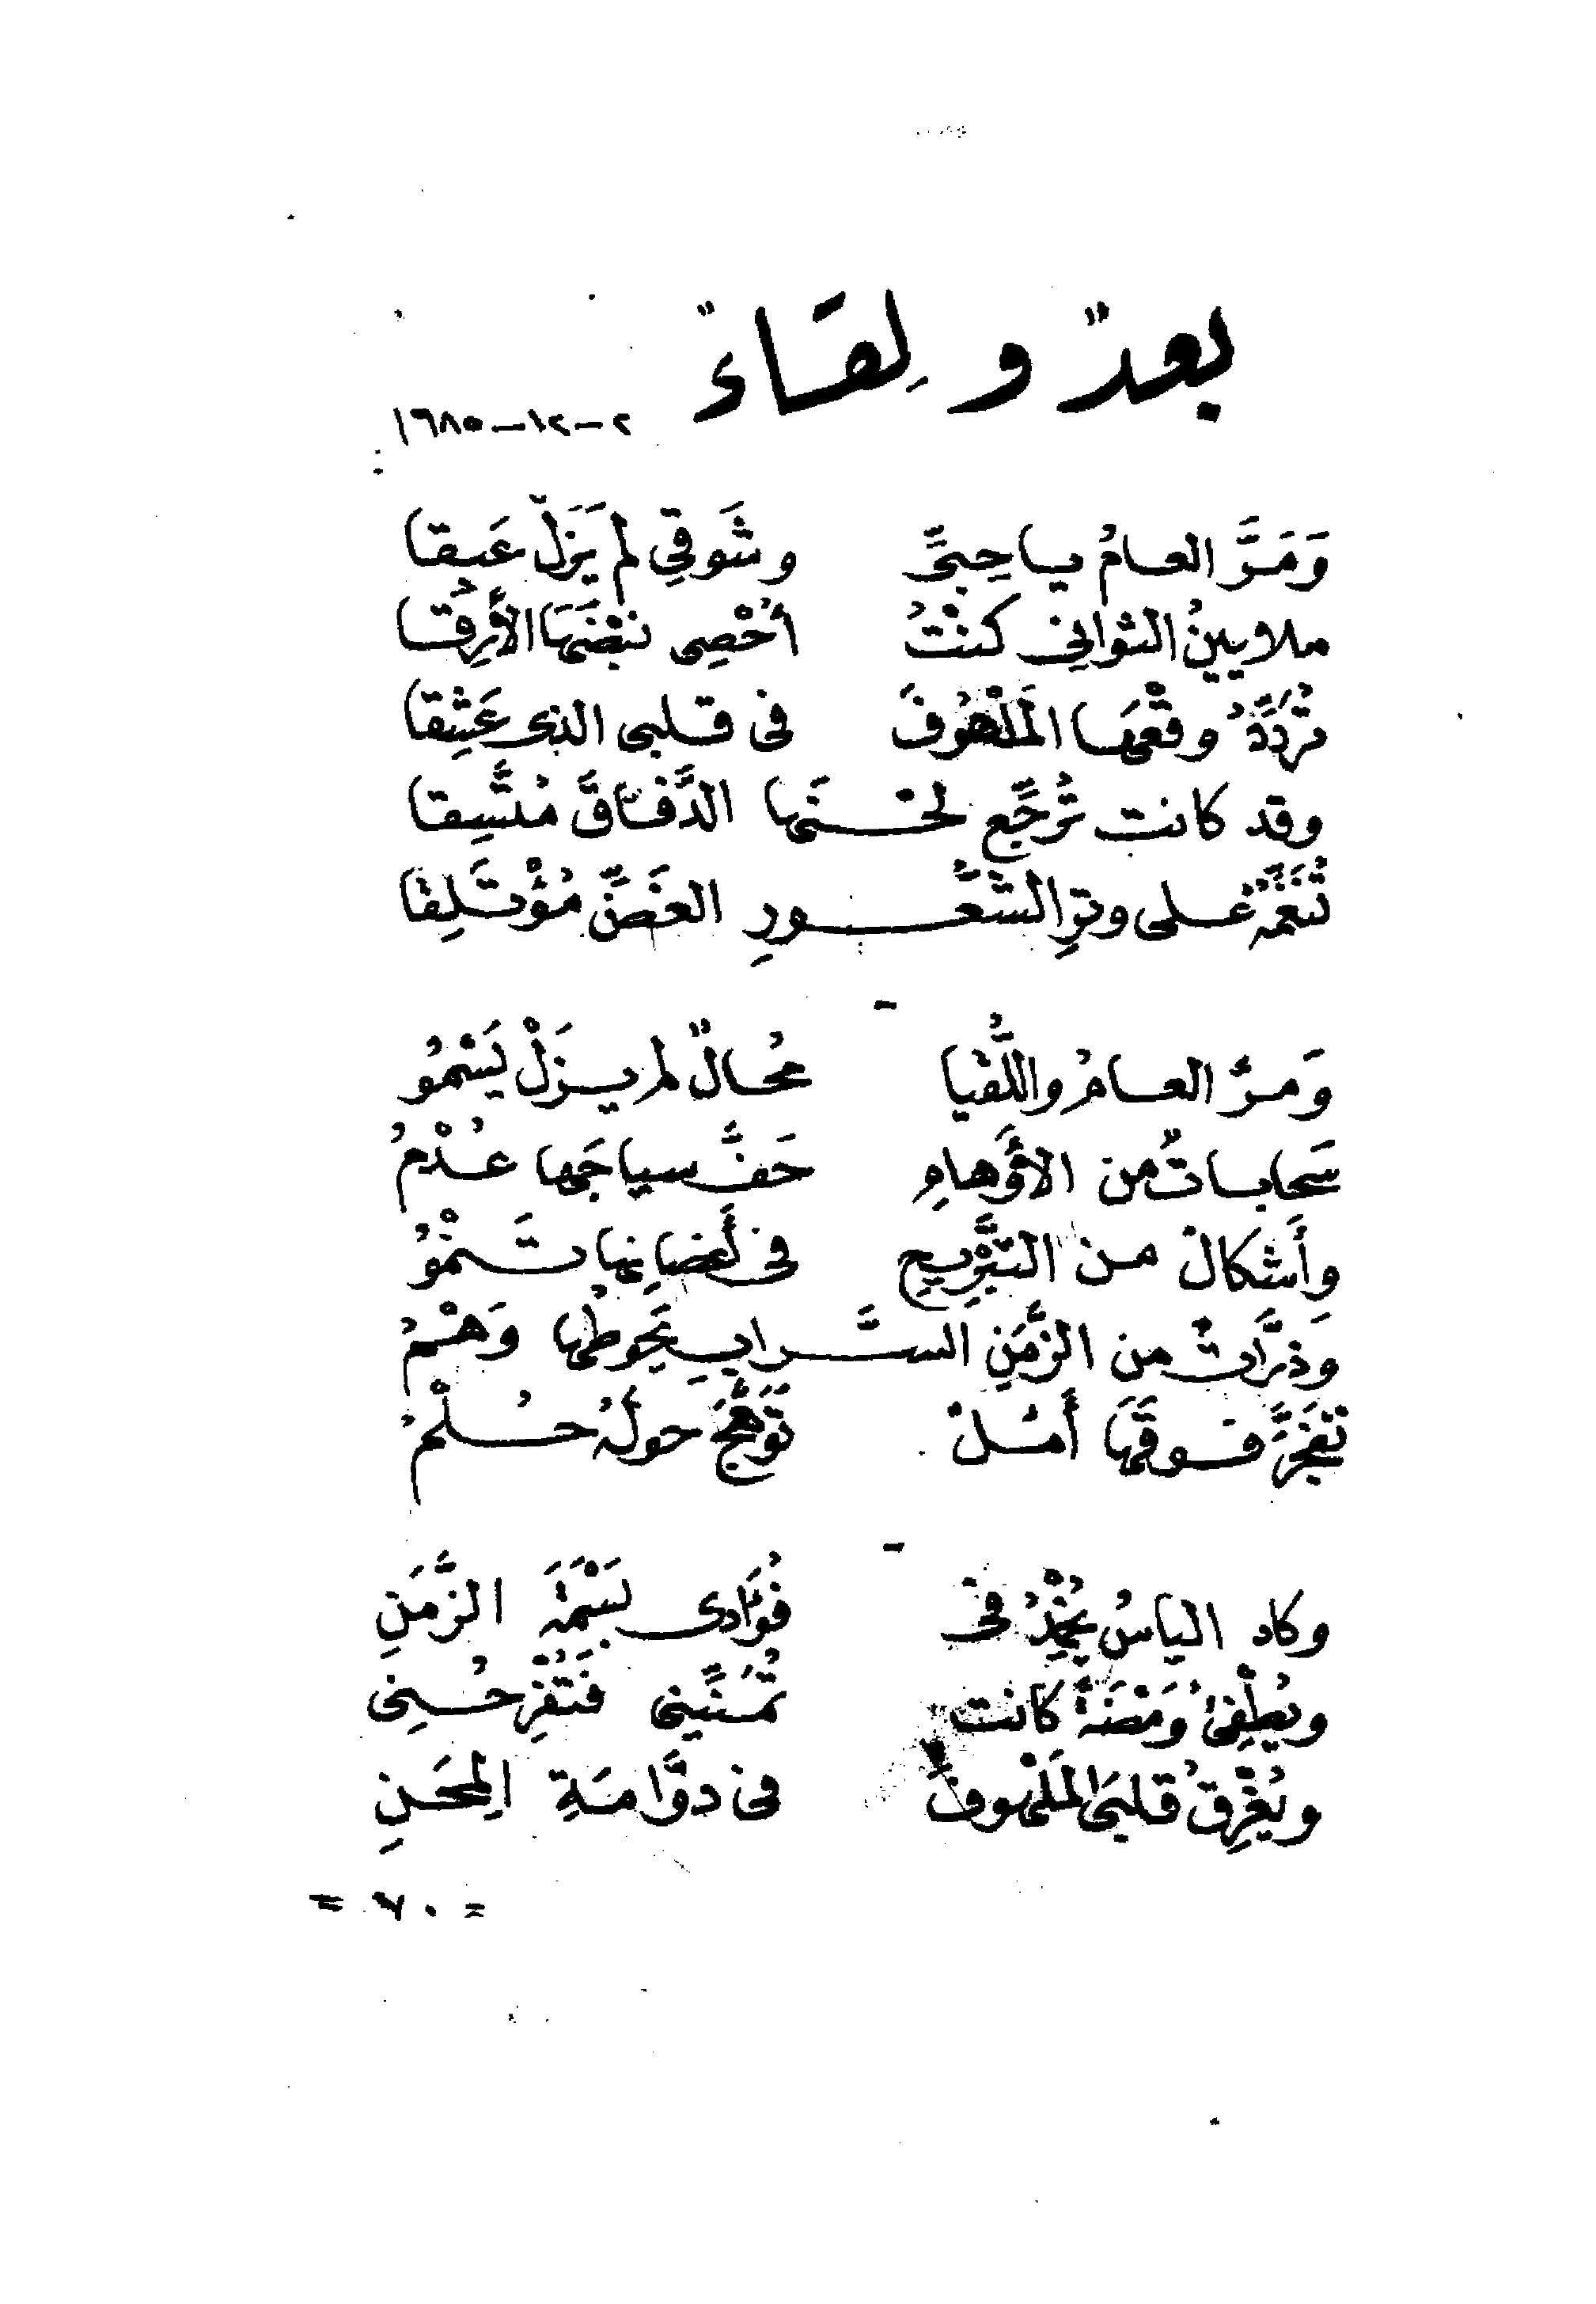 بعدٌ و لِقاءٌ
٢-١٢-١٦٨٥
وَمَرَّ العامُ يا حِبِّى وشَوقِي لم يَزَلْ عَبِقا
ملايينُ الثوانِى كنْتُ أُحْصِى نبْضَهَا الأَرِقُا
تُرَدِّدُ وقْعَها المَلْهُوفَ فى قلبى الذى عَشِقا
وقد كانت تُرَجِّع لحْنَها الدَّفَّاقَ مُتَّسِقا
تُنَغِّمُهُ على وترِ الشُّعُورِ الغَضِّ مُؤْتَلِقا
-
وَمَرَّ العامُ واللُّقْيا مُحالٌ لم يزَلْ يَسْمُو
سَحاباتٌ من الأوْهامِ حَفَّ سياجَها عُدْمُ
وأَشكالٌ من التَبْرِيحِ فى أَعضائِها تَنْمُو
وذرَّاتٌ من الزَّمَنِ السَّرابِ يَحُوطُها وَهْمُ
تفَجَّرَ فوقَهَا أَمَلٌ تَوَهَّجَ حولَهُ حُلْمُ
-
وكاد اليأسُ يُخْمِدُ فى فُؤَادى بَسْمَةَ الزَّمَنِ
ويُطْفِئُ وَمْضَةً كانت تُمَنِّينى فَتُفْرِحُنِى
ويُغْرِقُ قلبىَ المَلْهوفَ فى دوَّامَةِ المِحَنِ
= ٧٠ =